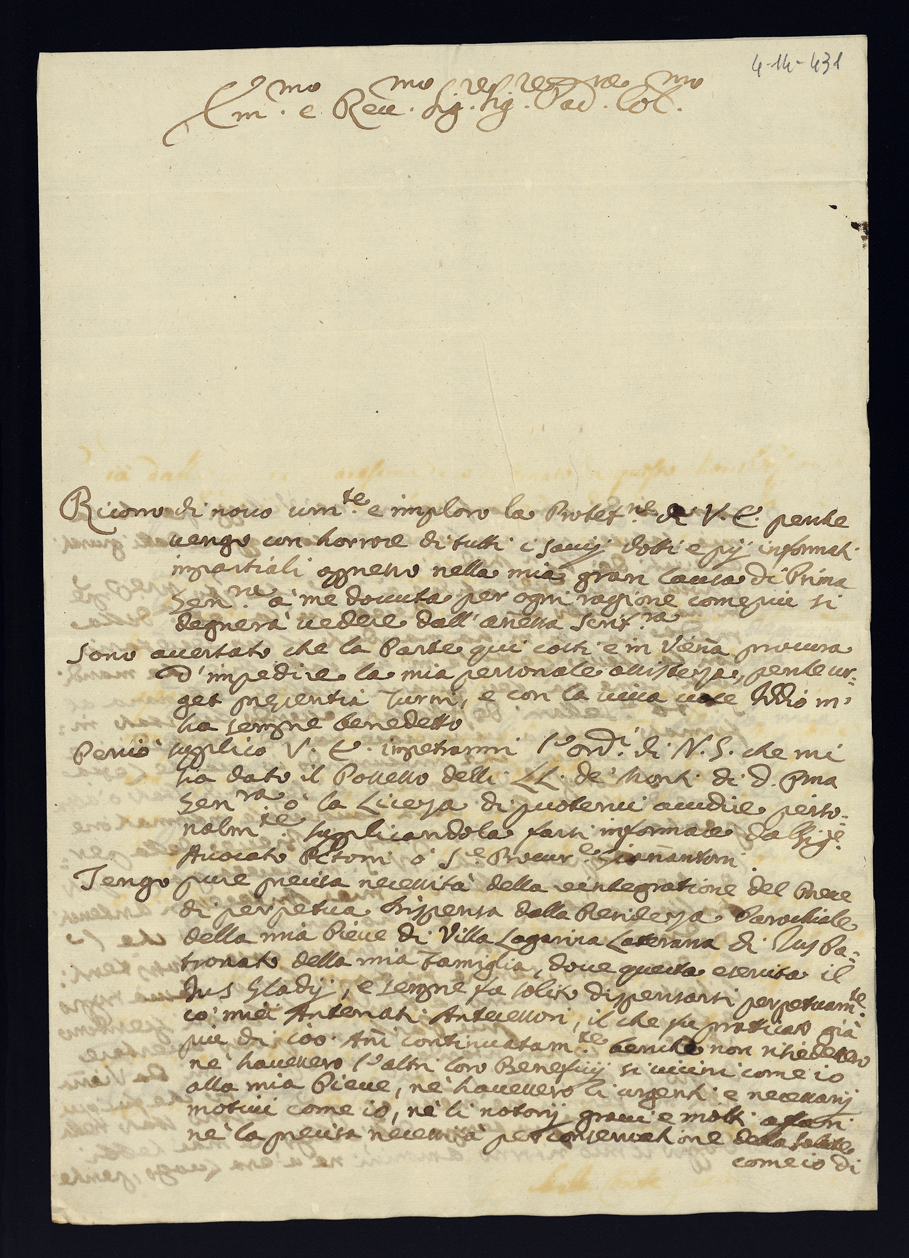 4-14-431
Em.mo e Reu.mo Sig.re Sig.re Pad.ne Col.mo
Ricorro di nouo um.te e imploro la Protet.ne di V. E. perche
uengo con horrore di tutti i sauij dotti e pij informati
impartiali oppresso nella mia gran causa di Prima
Gen.ra à me douuta per ogni ragione come qui si
degnerà uedere dall' anessa Scrit.ra
Sono auertato che la Parte qui costi e in Vieña procura
d' impedire la mia personale assistenza, perche ur-
get presentia Turni, e con la uiua uoce Iddio m'
hà sempre benedetto
Perciò supplico V. E. impetrarmi l' ord.e di N. S. che mi
hà dato il Possesso delli LL. de Monti di d. Pma
Gen.ra o la Liceza di poterui accudire perso-
nalm.te. Supplicandola farsi informare dal Sig.e
Auocato Pitoni ò S.e Procur.e Giañantoni
Tengo pure precisa necessità della reintegratione del Breue
di perpetua dispensa dalla Residenza Parochiale
della mia Pieue di Villa Lagarina Laterana di Juspa-
tronato della mia famiglia, doue questa esercita il
Jus Gladij, e sempre fù solito dispensarsi perpetuam.te
cò miei Antenati Antecessori, il che fù praticato già
più di 100. Añi continuatam.te benche non risiedettero
ne' hauessero l' altri loro Beneficij si uicini come io
alla mia Pieue, ne' hauessero li urgenti e necessarij
motiui come io, nè li notorij graui e molti affari
ne' la precisa necessità per conseruatione della salute
come io di